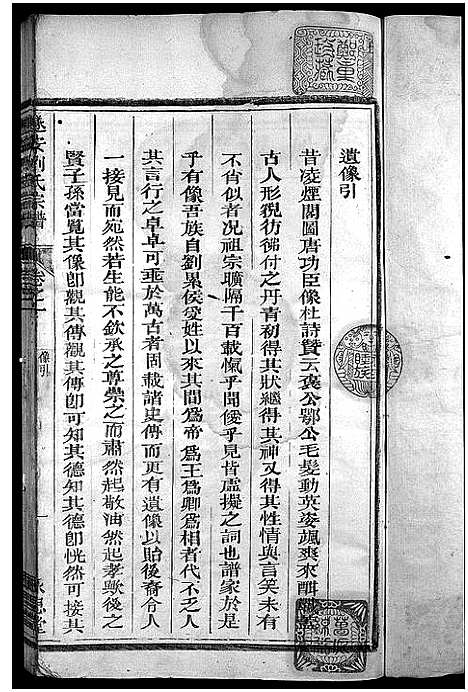 遺像引
昔凌煙閣圖唐功臣像杜詩贊云褒公鄂公毛髮動英姿颯爽來酣
古人形貌彷彿付之丹青初得其狀繼得其神又得其性情與言笑未有
不肖似者況祖宗曠隔千百載愾乎聞僾乎見皆虛擬之詞也譜家於是
乎有像吾族自劉累侯受姓以來其間為帝為王為卿為相者代不乏人
其言行之卓卓可垂於萬古者固載諸史傳而更有遺像以貽後裔令人
一接見而宛然若生能不欽承之尊崇之而肅然起敬油然起孝歟後之
賢子孫當覽其像卽觀其傳觀其傳卽可知其德知其德卽恍然可接其
劉氏宗譜
卷之一
像引